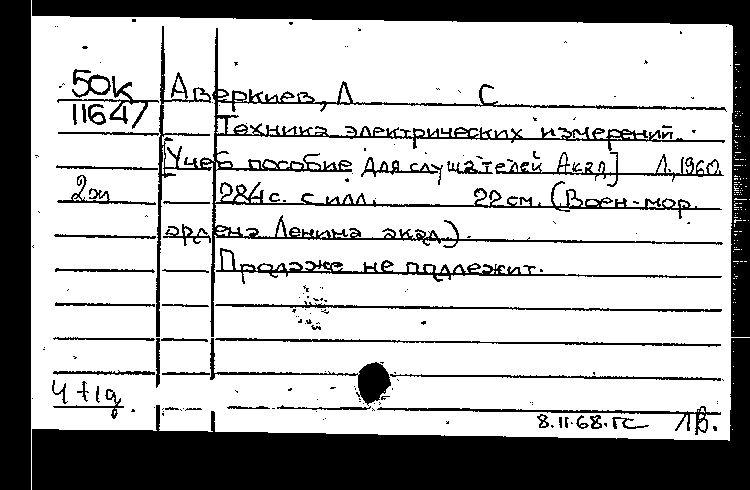 50К Аверкиев, Л С
11647 Техника электрических измерений.
[Учеб пособие для слушателей Акад] Л., 1960.
2эл 284 с. с илл. 22 см. (Воен-мор.
ордена Ленина акад.).
Продаже не подлежит.
8.II.68.ГС ЛВ.